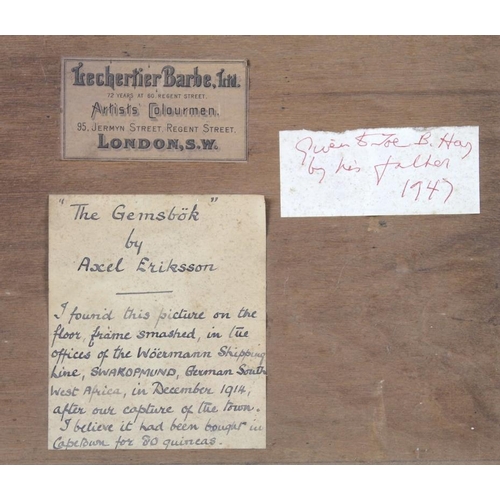 Lechertier Barbe, Ltd.
72 YEARS AT 60 REGENT STREET.
Artists' Colourmen.
95, JERMYN STREET, REGENT STREET,
LONDON, S.W.
given to B. Hay
by his father
1947
"The Gemsbök"
by
Axel Eriksson
I found this picture on the
floor, frame smashed, in the
offices of the Wöermann Shipping
Line, SWAKOPMUND, German South
West Africa, in December 1914,
after our capture of the town.
I believe it had been bought in
Capetown for 80 guineas.